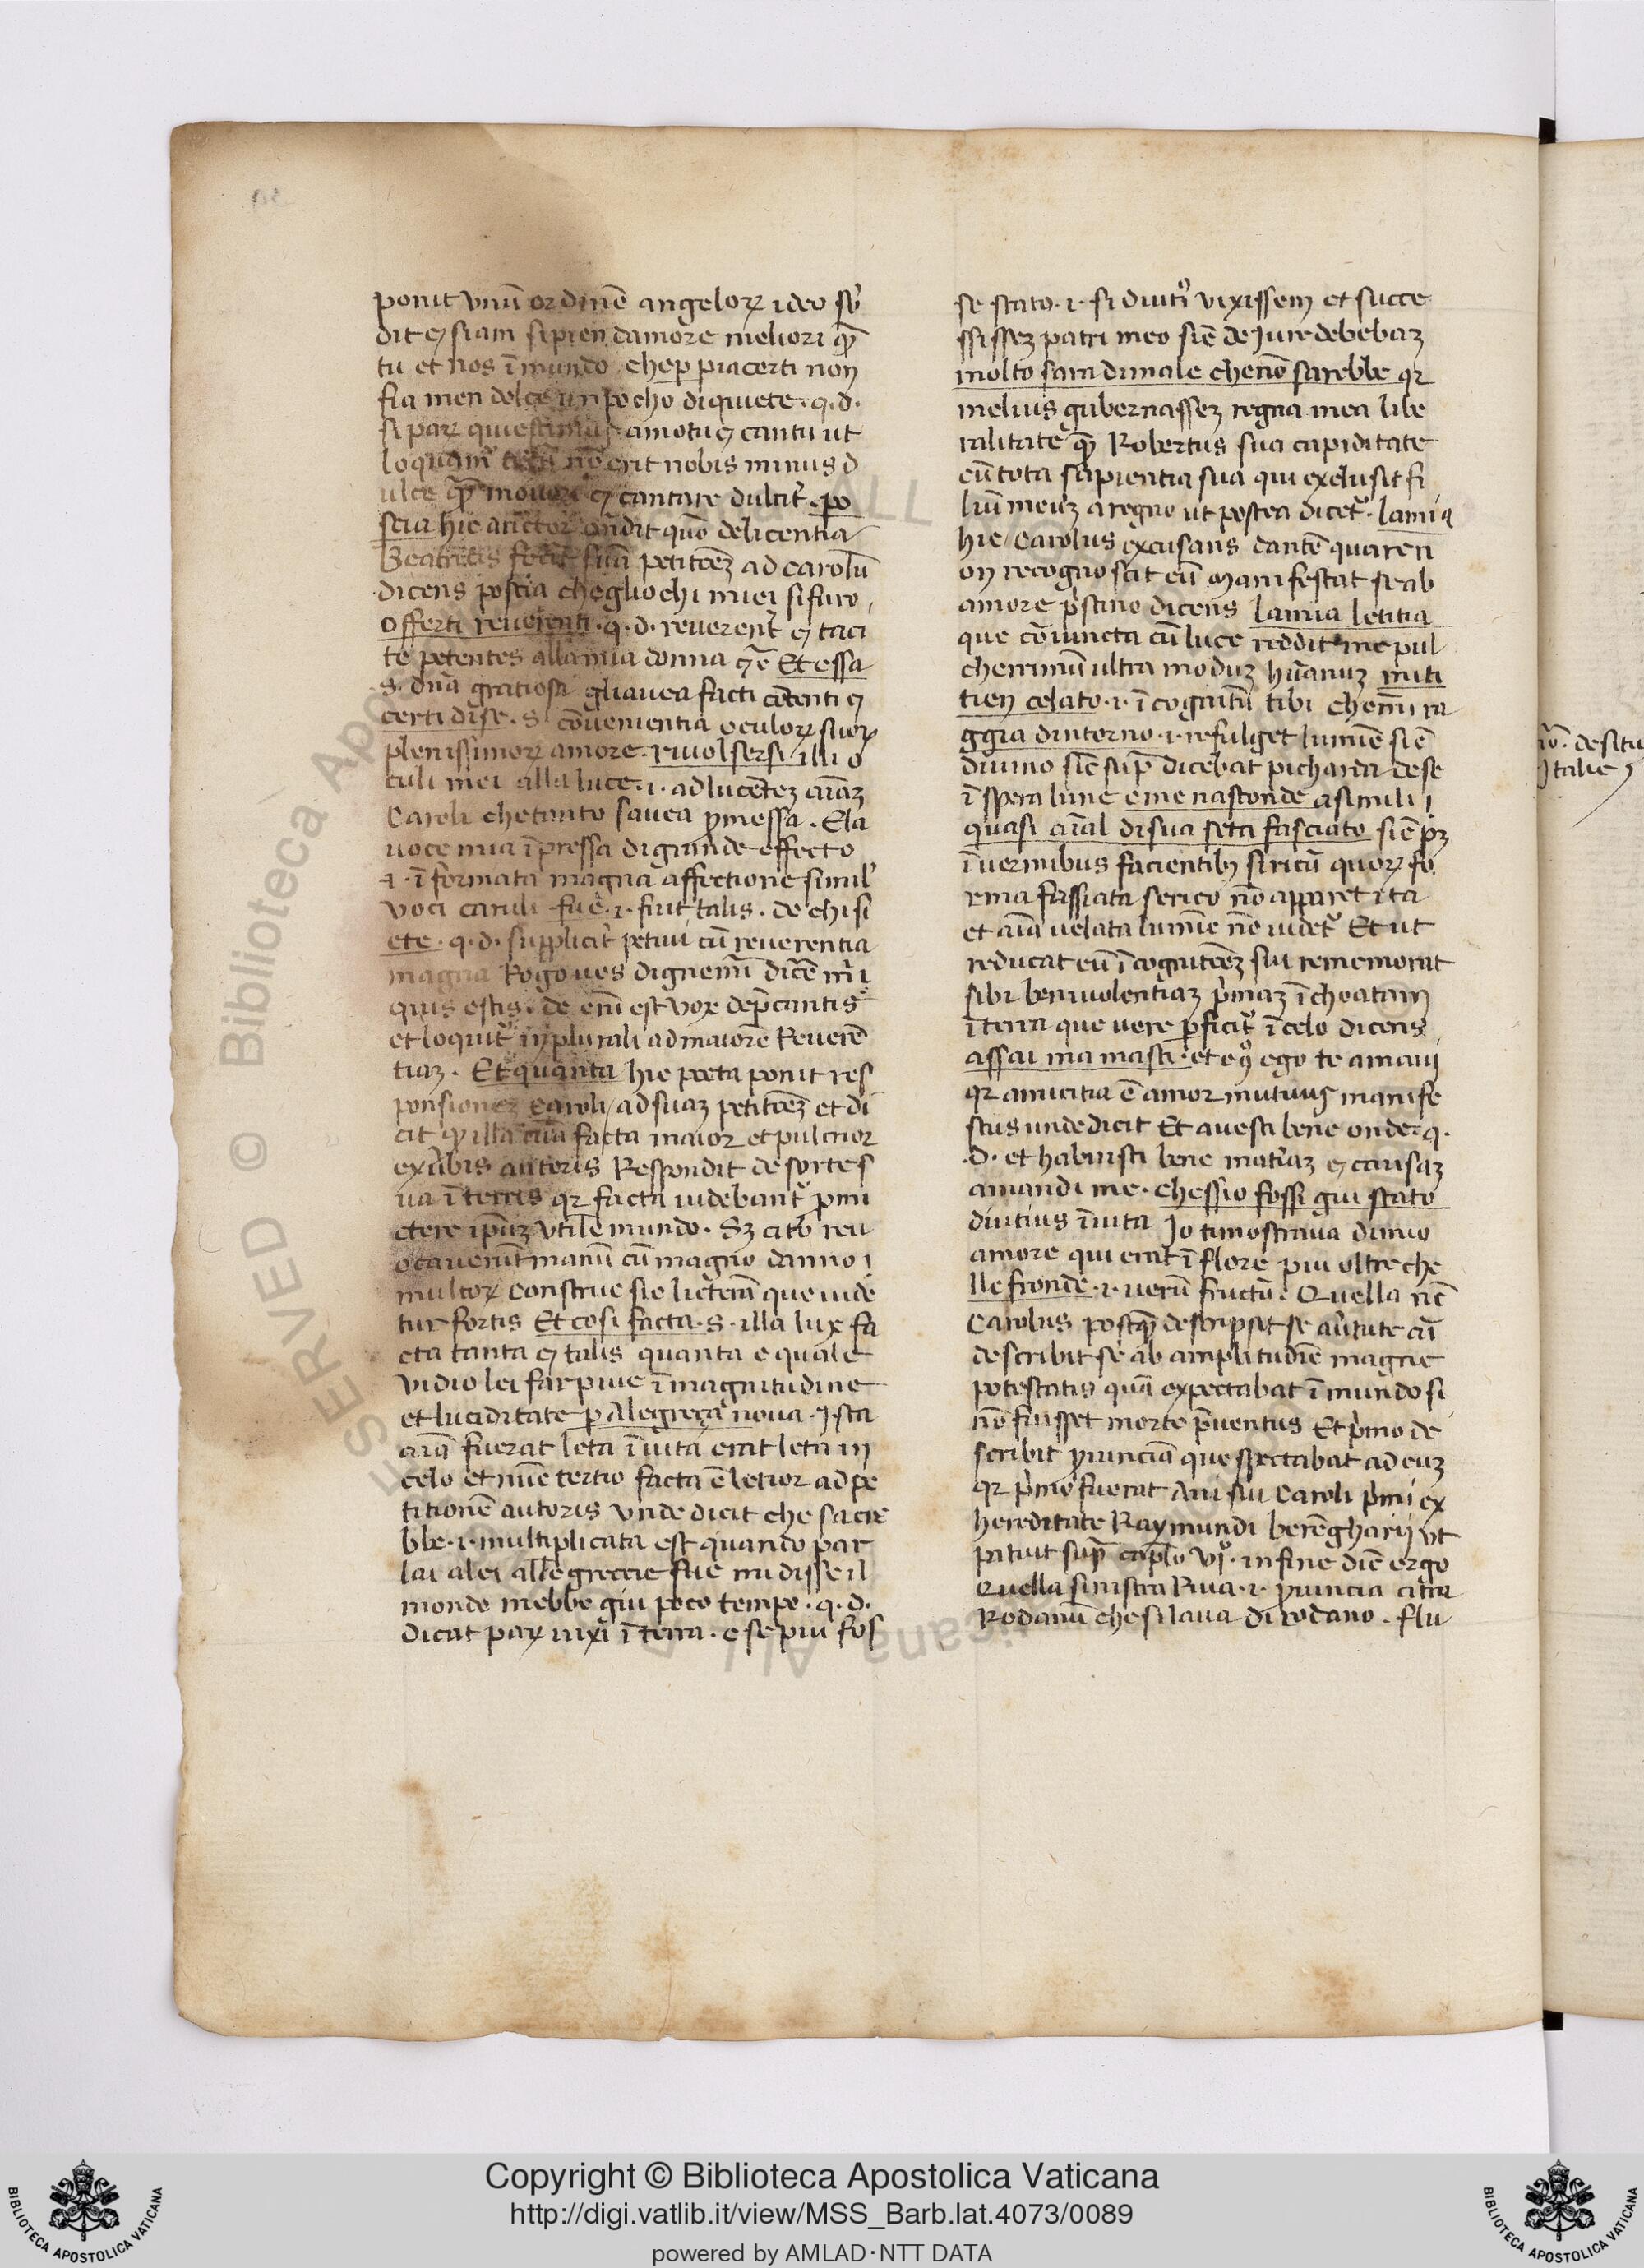 ponit vnū ordinē angeloꝝ ideo sb̾
dit ⁊ siam sipien damore meliori qᷓꝫ
tu et nos ī mundo cheper piacerti non
fia men dolce un pocho di quiete · q · d ·
si paꝝ quiescimus a motu ⁊ cantu ut
loquam̄ tecū nō erit nobis minus d
ulce qᷓꝫ moueri ⁊ cantare dulcit̾ · po
scia hic auctor oñdit quō de licentia
Beatricis fecit suā petitōeꝫ ad carolū
dicens poscia che gliochi miei si furo
offerti reuerenti · q · d · reuerent̾ ⁊ taci
te petentes alla mia donna Et essa
· s · dña gratiosa gli auea facti cōtenti ⁊
certi di se · s · conuenientia oculoꝝ suoꝝ
plenissimoꝝ amore · riuolsersi illi o
culi mei alla luce · i · ad lucenteꝫ aīaꝫ
Caroli che tanto sauea ꝓmessa · E la
uoce mia īpressa di grande effecto
· i · īformata magna affectione simul̾
voci caruli fue · i · fuit talis · de chi si
ete · q · d · supplicit̾ petiui cū reuerentia
magna Rogo uos dignemī dicē m̄i
quis estis · de enī est vox dep̄cantis
et loquit̾ in plurali ad maiorē Reuerē
tiaꝫ · Et quanta hic poeta ponit res
ponsioneꝫ Caroli ad suaꝫ petitōeꝫ et di
cit ꝙ illa aīa facta maior et pulcrior
ex ūbis autoris Respondit de sorte s
ua ī terris qꝛ facta uidebant̾ ꝓmi
ctere ip̄uꝫ vtile mundo · Sꝫ cito reu
ocauerūt manū cū magno danno
multoꝝ construe sic licterā que uide
tur fortis Et cosi facta · s · illa lux fa
cta tanta ⁊ talis quanta e quale
vidio lei far piue ī magnitudine
et luciditate p Alegreça noua · Ista
aīa fuerat leta ī uita erat leta in
celo et nūc tertio facta ē letior ad pe
titionē autoris vnde dicit che sacre
bbe · i · multiplicata est quando par
lai a lei alle grecie sue mi disse il
mondo mebbe giu poco tempo · q · d ·
dicat paꝝ uixi ī terra · e se piu fos
se stato · i · si diuti᾽ vixissem et succe
ssisseꝫ patri meo sic̄ de Iure debebaꝫ
molto sara di male che nō sarebbe qꝛ
melius gubernasseꝫ regna mea libe
ralitate qᷓꝫ Robertus sua cupiditate
cū tota sapientia sua qui exclusit fi
liū meuꝫ a regno ut postea dicet̾ · lami a
hic Carolus excusans dantē quare n
on recognoscat eū manifestat se ab
amore p̄stino dicens la mia letitia
que cōiuncta cū luce reddit me pul
cherrimū ultra moduꝫ hūanuꝫ miti
tien celato · i · īcognitū tibi chemi ra
ggia dintorno · i · refulget lumē sic̄
diuino sic̄ sup̄ dicebat picharda de se
ī spera lune e me nasconde a simili
quasi aīal di sua seta fasciato sic̄ pꝫ
ī uermibus facientibꝫ siricū quoꝝ fo
rma fassiata serico nō apparet ita
et aīa uelata lumīe nō uidet̾ Et ut
reducat eū ī cognitōeꝫ sui rememorat
sibi beniuolentiaꝫ p̄maꝫ īchoatam
ī terra que uere ꝑficit̾ ī celo dicens
assai ma masti · et eꝯ᾽ ego te amaui
qꝛ amicitia ē amor mutuus manife
stus unde dicit Et auesti bene onde · q ·
· d · et habuisti bene mat̾iaꝫ ⁊ causaꝫ
amandi me · chessio fossi giu stato
diutius ī uita Io ti mostraua di mio
amore qui erat ī flore piu oltre che
lle fronde · i · uerū fructū · Quella nc̄
Carolus postqᷓꝫ descripsit se a ūtute aī
describit se ab amplitudīe magne
potestatis quā expectabat ī mundo si
nō fuisset morte p̄uentus Et p̄mo de
scribit ꝓuinciā que spectabat ad euꝫ
qꝛ p̄mo fuerat Aui sui Caroli p̄mi ex
hereditate Raymundi berēgharij vt
patuit sup̄ caplō vjº · in fine dic̄ ergo
Quella sinistra Riua · i · ꝓuincia citra
Rodanū che si laua di rodano · flu
desitu
Italie
Copyright © Biblioteca Apostolica Vaticana
http://digi.vatlib.it/view/MSS_Barb.lat.4073/0089
powered by AMLAD·NTT DATA
BIBLIOTECA APOSTOLICA VATICANA
BIBLIOTECA APOSTOLICA VATICANA